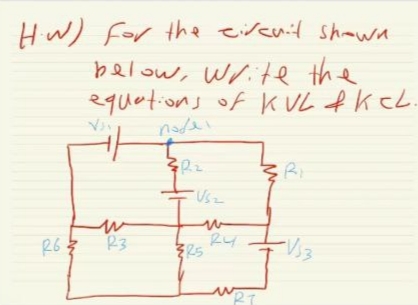 H.W) For the circuit shown
below, write the
equations of KVL & KCL.
Vs1 node1
R2 R1
Vs2
R6 R3 R5 R4 Vs3
R7